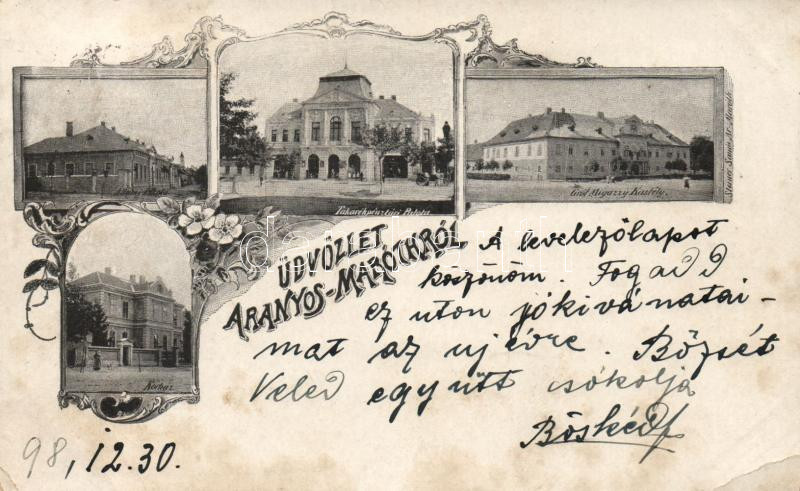 Takarékpénztári Palota
Gróf Migazzy Kastély.
Kórház
ÜDVÖZLET
ARANYOS-MARÓTHRÓL
A levelezőlapot
köszönöm. Fogadd
ez uton jókivánatai-
mat az uj évre. Bözsét
Veled együtt csókolja
Böskéd
98, 12.30.
darabanth